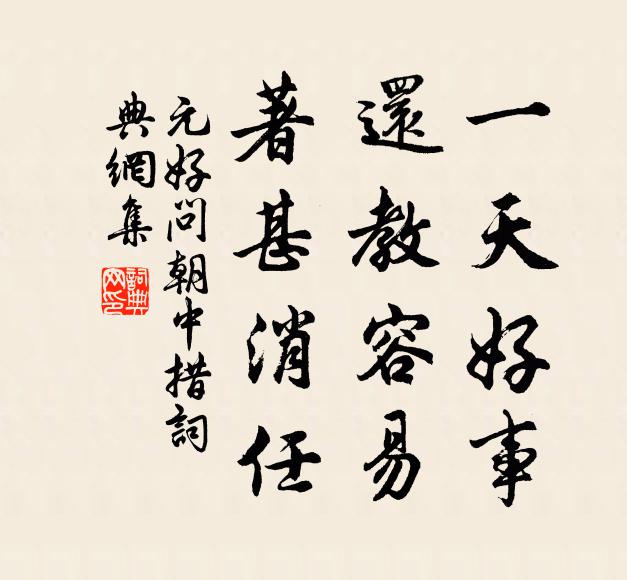 一天好事
還教容易
著甚消任
元好問朝中措詞
典網集
詞典網印